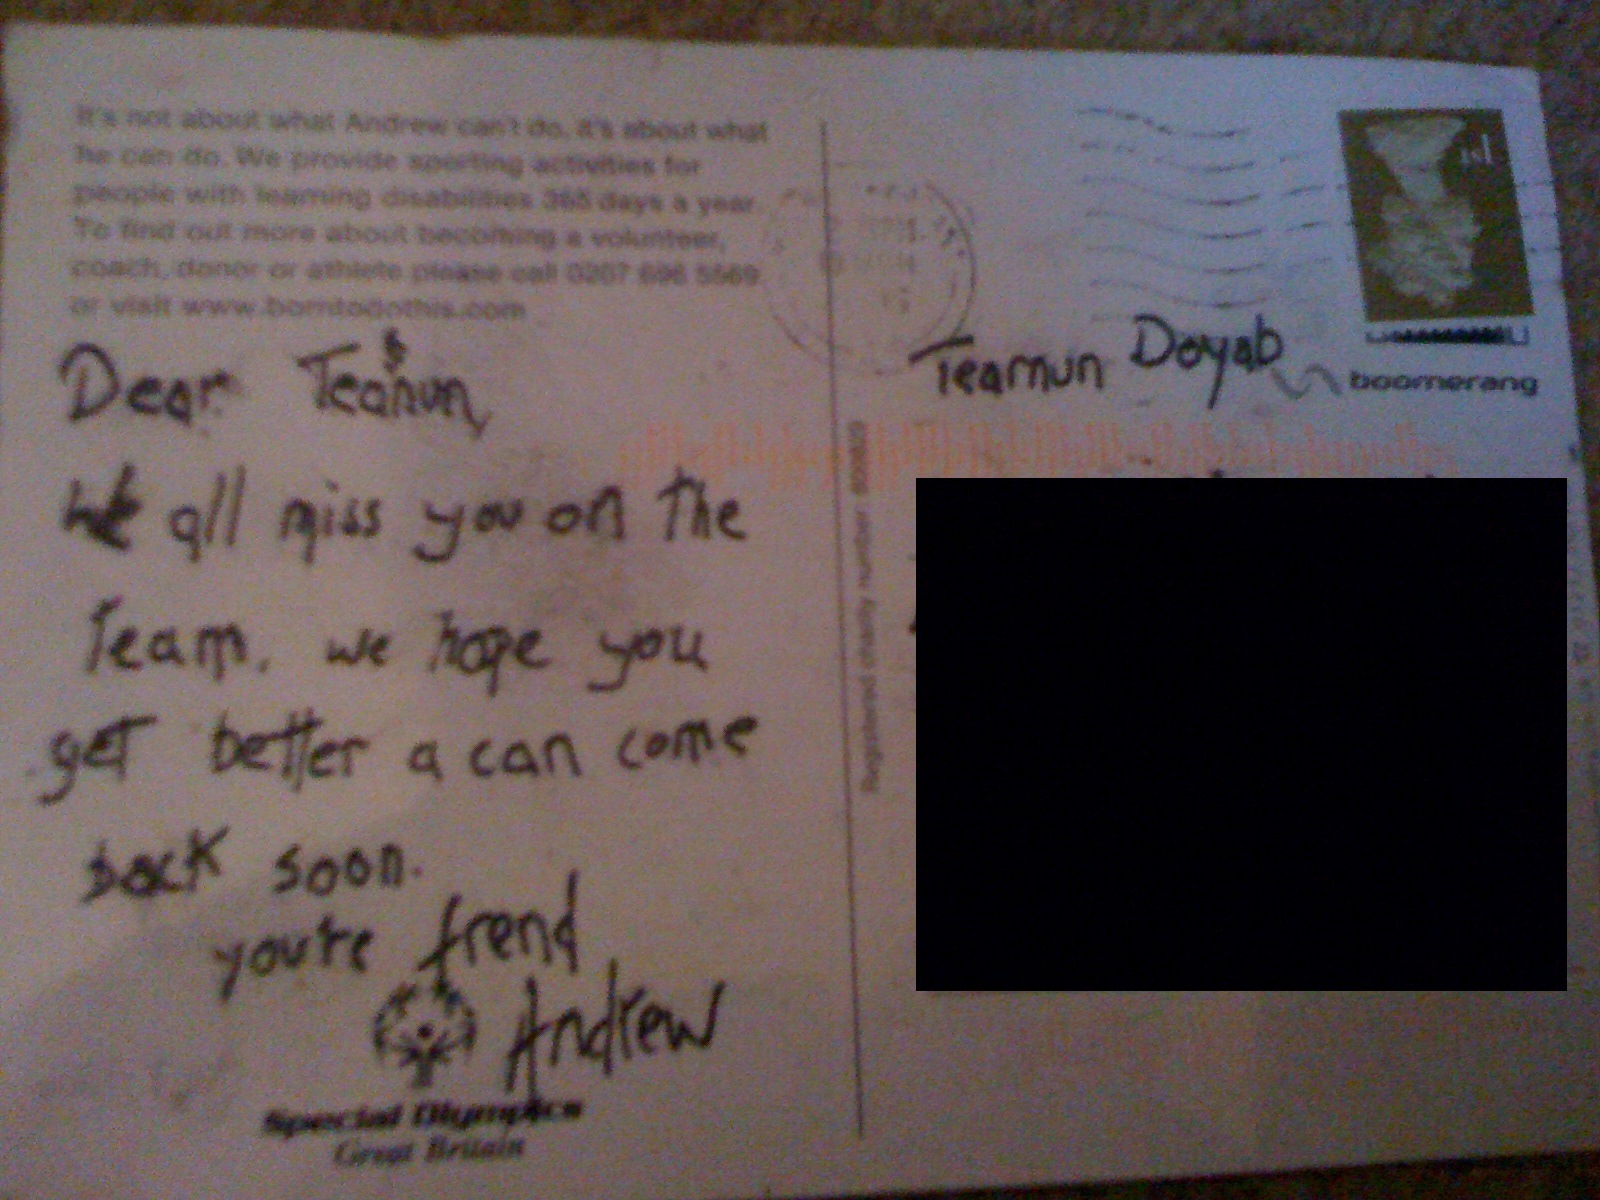 It's not about what Andrew can't do, it's about what
he can do. We provide sporting activities for
people with learning disabilities 365 days a year.
To find out more about becoming a volunteer,
coach, donor or athlete please call 0207 696 5569
or visit www.borntodothis.com
Dear Teamun,
We all miss you on the
Team. we hope you
get better a can come
back soon.
you're frend
Andrew
Special Olympics
Great Britain
Registered charity number 800329
1st
Teamun Doyab
boomerang